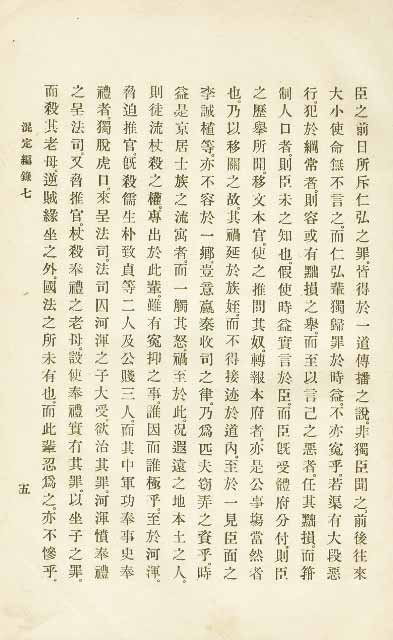 臣之前日所斥仁弘之罪皆得於一道傳播之說非獨臣聞之前後往來
大小使命無不言之而仁弘輩獨歸罪於時益不亦寃乎若渠有大段惡
行犯於綱常者則容或有黜損之擧而至以言己之惡者任其黜損而箝
制人口者則臣未之知也假使時益實言於臣而臣旣受體府分付則臣
之歷擧所聞移文本官使之推問其奴轉報本府者亦是公事塲當然者
也乃以移關之故其禍延於族姪而不得接迹於道內至於一見臣面之
李誠植等亦不容於一鄕豈意嬴秦收司之律乃爲匹夫窃弄之資乎時
益是京居士族之流寓者而一觸其怒禍至於此况遐遠之地本土之人
則徒流杖殺之權專出於此輩雖有寃抑之事誰因而誰極乎至於河渾
脅迫推官旣殺儒生朴致貞等二人及公賤三人而其中軍功奉事史奉
禮者獨脫虎口來呈法司法司囚河渾之子大受欲治其罪河渾憤奉禮
之呈法司又脅推官杖殺奉禮之老母設使奉禮實有其罪以坐子之罪
而殺其老母逆賊緣坐之外國法之所未有也而此輩忍爲之亦不慘乎
混定編錄七
五